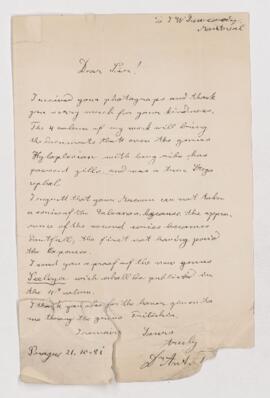 to J W Dawson,
Montreal
Dear Sir!
I received your photographs and thank
you very much for your kindness.
The 4 volume of my work will bring
the documents that even the genus
Hyloplesion with long ribs has
present gills, and was a true Stego
cephal.
I regrett that your Museum can not take
a series of the Galvanos, because the appea
rance of the second series becomes
doubtfull, the first not having paid
the expenses.
I send you a proof of the new genus
Seeleya wich shall be published in
the 4th volume.
I thank you also for the honor given to
me through the genus Fritschia.
I remain Yours
truly
Prague 21. 10 - 81 Dr Ant.